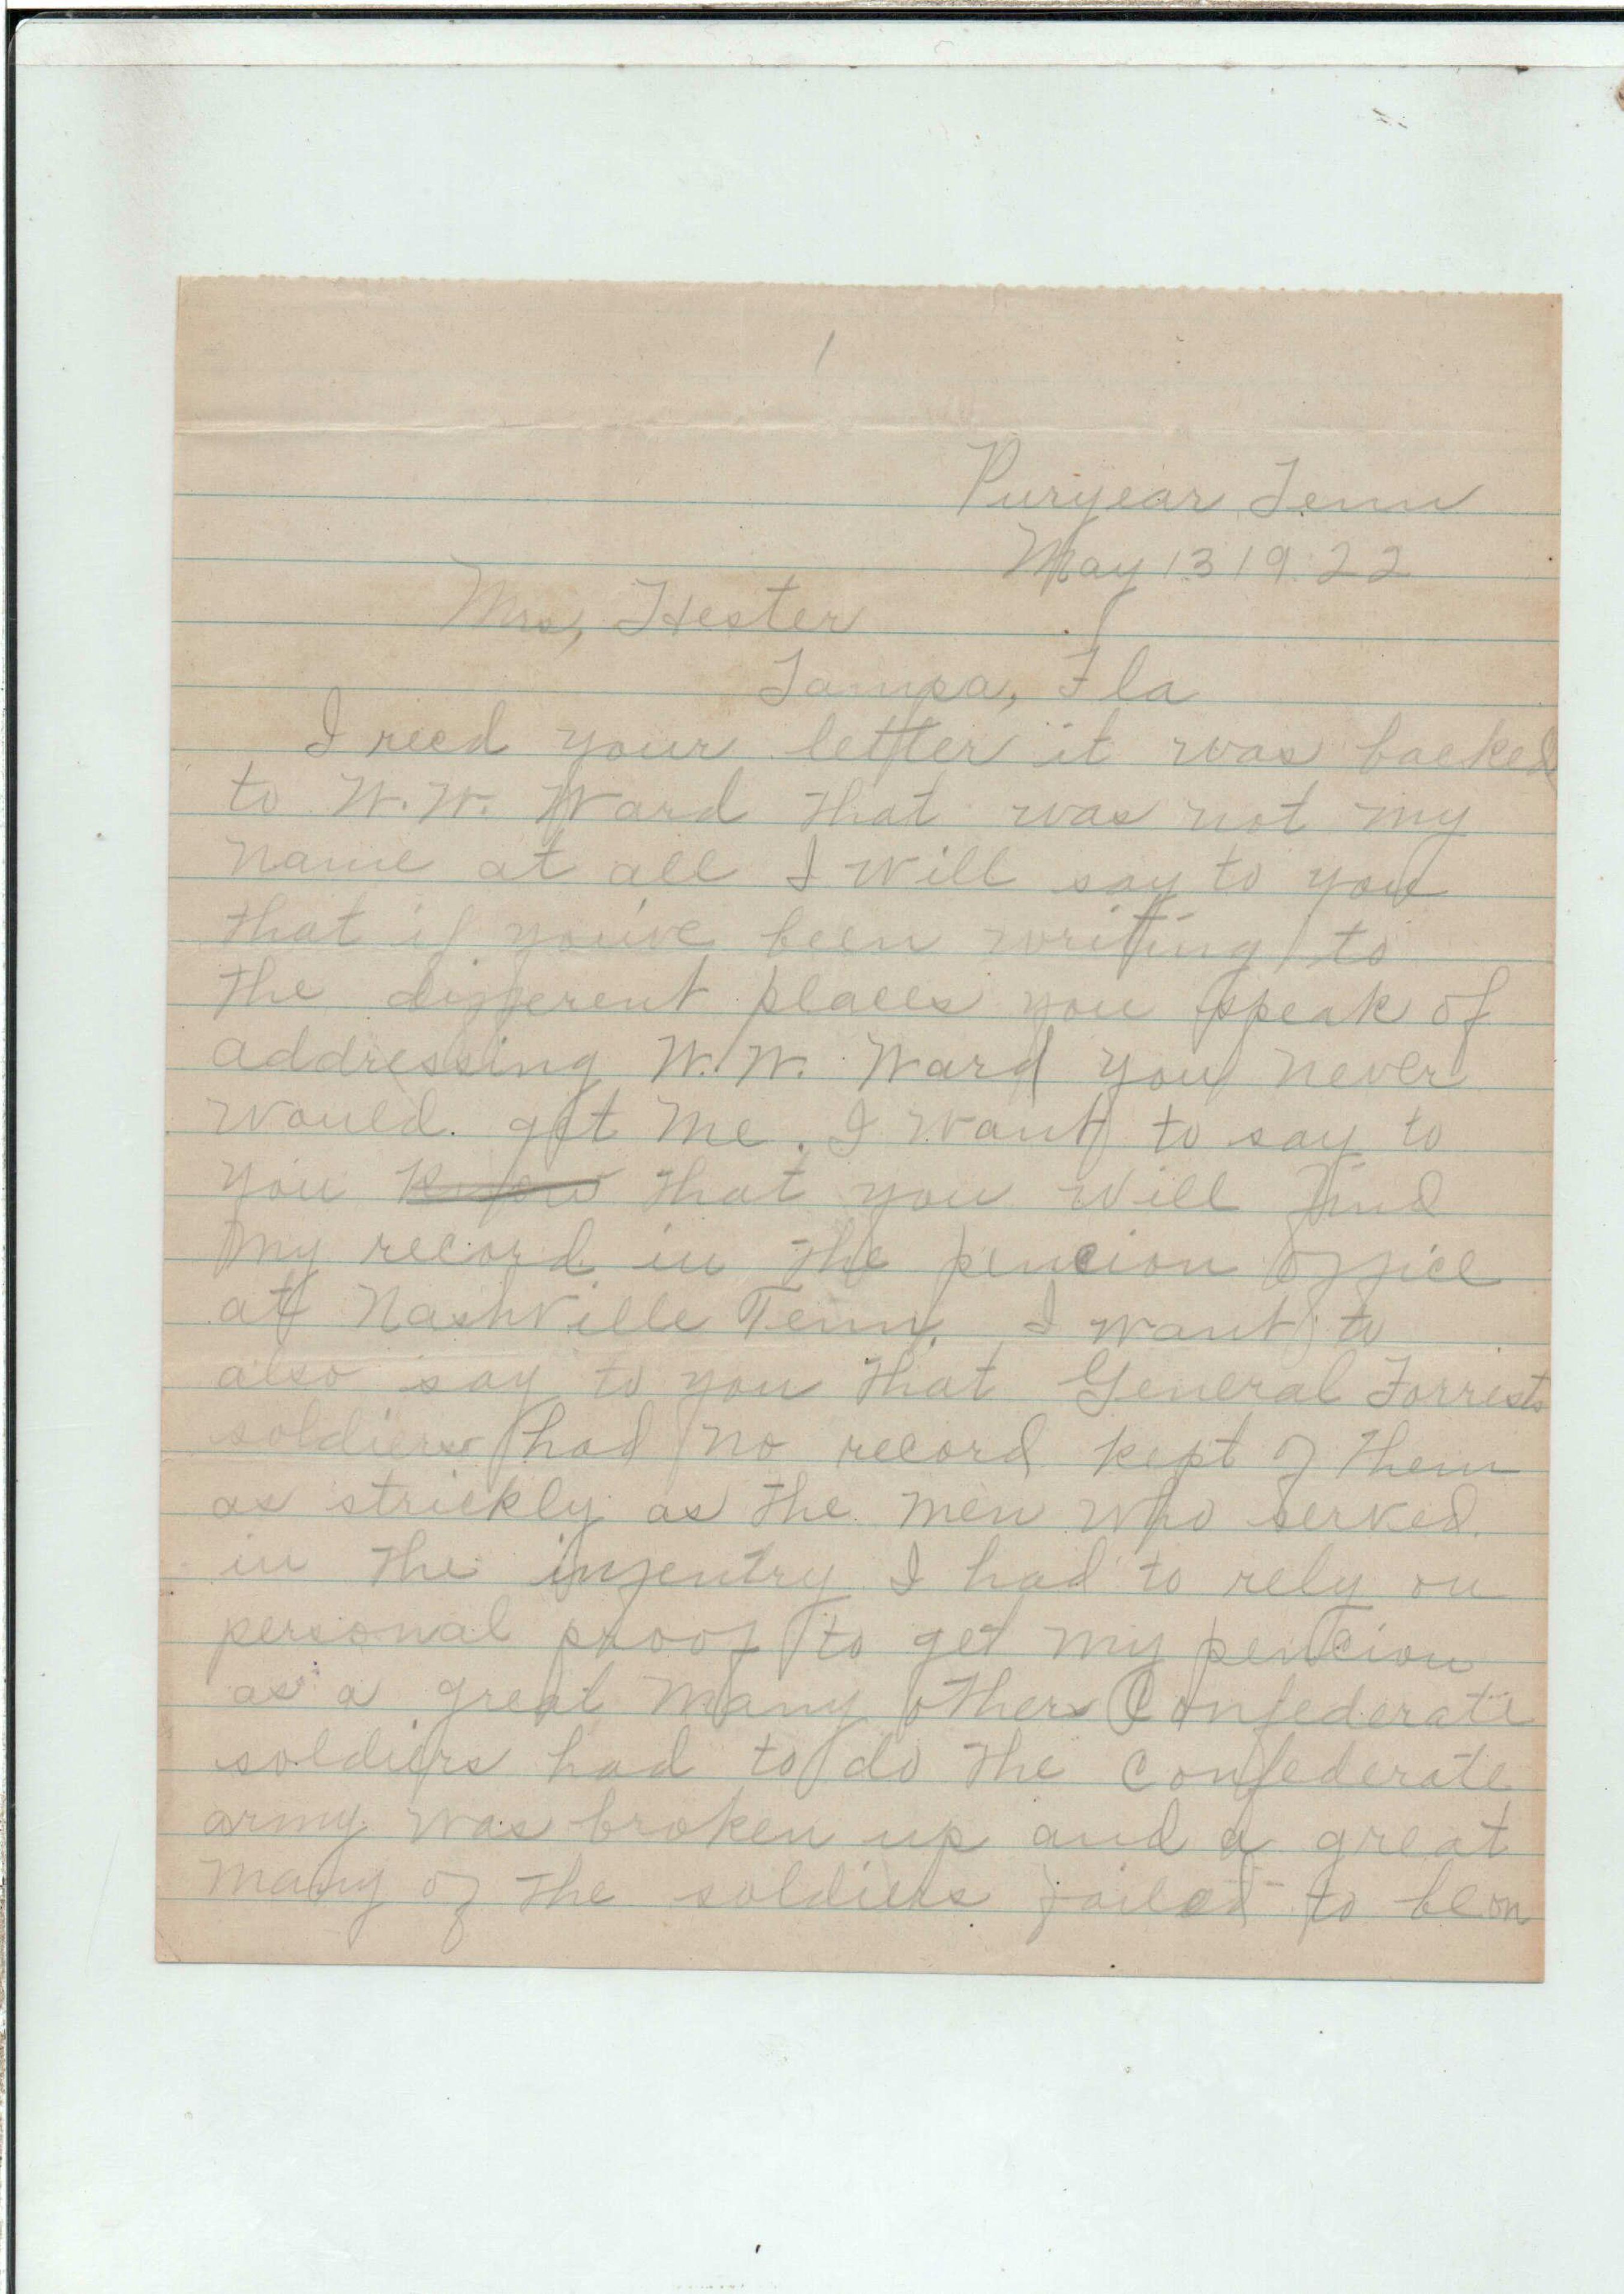 1
Puryear, Tenn
May 13 19.22
Mrs, Hester
Tampa, Fla
I recd your letter it was backed
to W.W. Ward that was not my
name at all I will say to you
that if you've been writing to
the different places you speak of
addressing W.W. Ward you never
would get me. I want to say to
you know that you will find
my record in the pencion office
at Nashville Tenn. I want to
also say to you that General Forrests
soldiers had no record kept of them
as strickly as the men who serked
in the infentry I had to rely on
personal proof to get my pencion
as a great many others Confederate
soldiers had to do the Confederate
army was broken up and a great
many of the soldiers failed to be on